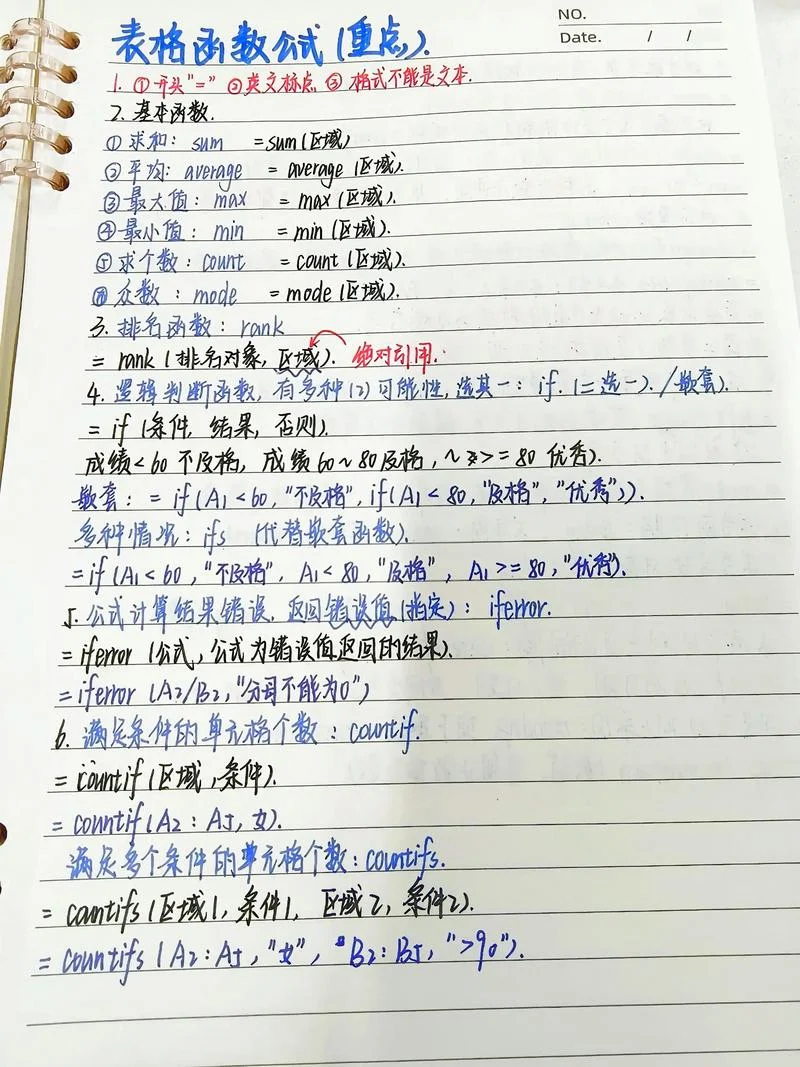 NO.
Date. / /
表格函数公式(重点).
1. ①开头"=" ②英文标点 ③ 格式不能是文本.
2. 基本函数.
① 求和: sum =sum(区域)
② 平均: average = average (区域).
③ 最大值: max = max (区域).
④ 最小值: min = min (区域).
⑤ 求个数: count = count (区域).
⑥ 众数: mode = mode (区域).
3. 排名函数: rank
= rank (排名对象, 区域). 绝对引用.
4. 逻辑判断函数, 有多种(2)可能性, 选其一: if. (二选一). /嵌套).
= if (条件, 结果, 否则).
成绩<60 不及格, 成绩60~80及格, ~ >= 80 优秀).
嵌套: = if (A1<60, "不及格", if (A1<80, "及格", "优秀")).
多种情况: ifs (代替嵌套函数).
=if (A1<60, "不及格", A1<80, "及格", A1>=80, "优秀").
5. 公式计算结果错误, 返回错误值(指定): iferror.
= iferror (公式, 公式为错误值返回的结果).
= iferror (A2/B2, "分母不能为0")
6. 满足条件的单元格个数: countif.
= countif (区域, 条件).
= countif (A2: A5, 女).
满足多个条件的单元格个数: countifs.
= countifs (区域1, 条件1, 区域2, 条件2).
= countifs (A2: A5, "女", B2: B5, ">90").